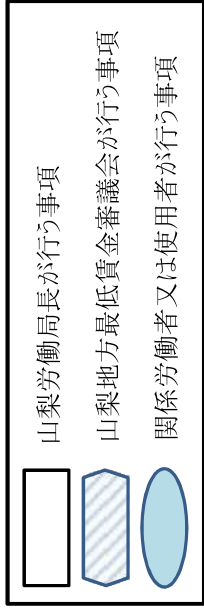 山梨労働局長が行う事項
山梨地方最低賃金審議会が行う事項
関係労働者又は使用者が行う事項